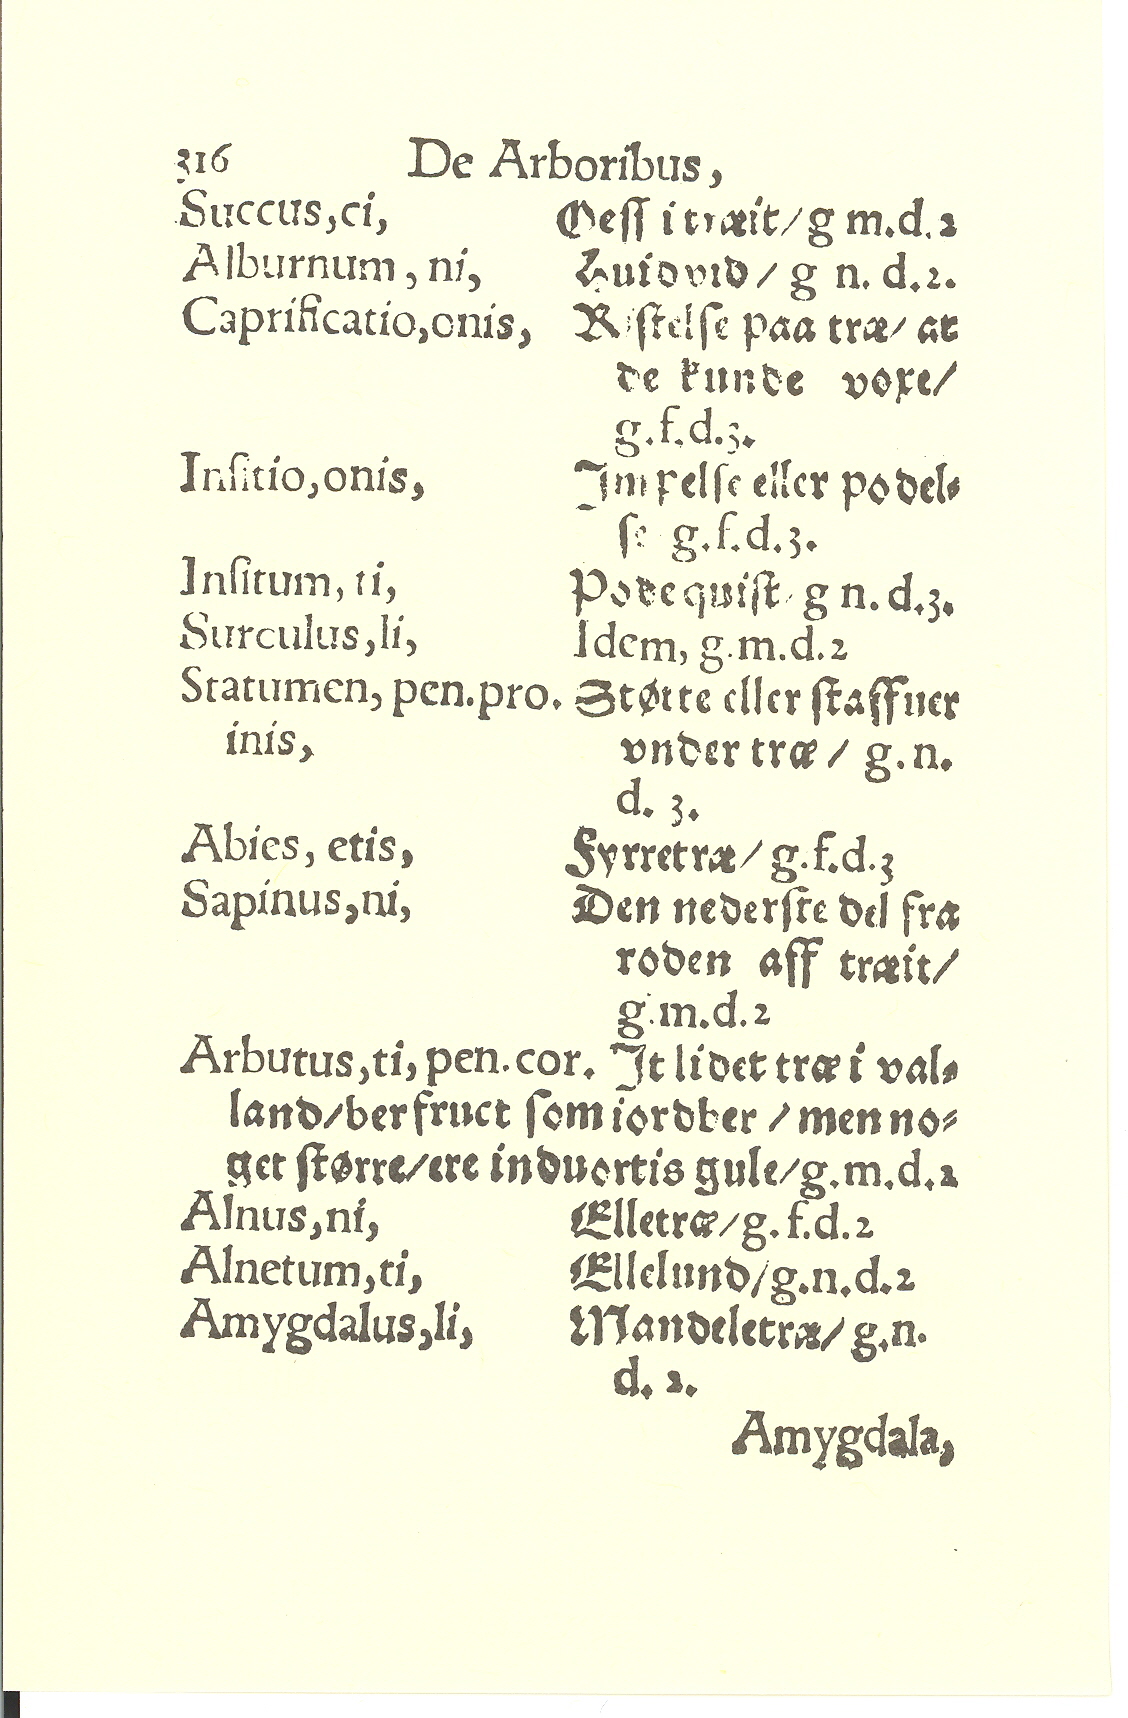 316 De Arboribus,
Succus,ci, Oeſſ i træit/g m.d.2
Alburnum, ni, Huidvid/ g n. d.2.
Caprificatio,onis, Riſtelſe paa træ/ at
de kunde voxe/
g.f.d.3.
Inſitio,onis, Impelſe eller podel-
ſe g.f.d.3.
Inſitum, ti, Podequiſt g n.d.3.
Surculus,li, Idem, g.m.d.2
Statumen, pen.pro. Støtte eller ſtaffuer
inis, vnder træ/ g.n.
d. 3.
Abies, etis, Fyrretræ/ g.f.d.3
Sapinus,ni, Den nederſte del fra
roden aff træit/
g.m.d.2
Arbutus,ti, pen.cor. It lidet træ i val-
land/ber fruct ſom iordber / men no-
get ſtørre/ere induortis gule/g.m.d.2
Alnus,ni, Elletræ/g.f.d.2
Alnetum,ti, Ellelund/g.n.d.2
Amygdalus,li, Mandeletræ/ g.n.
d. 2.
Amygdala,